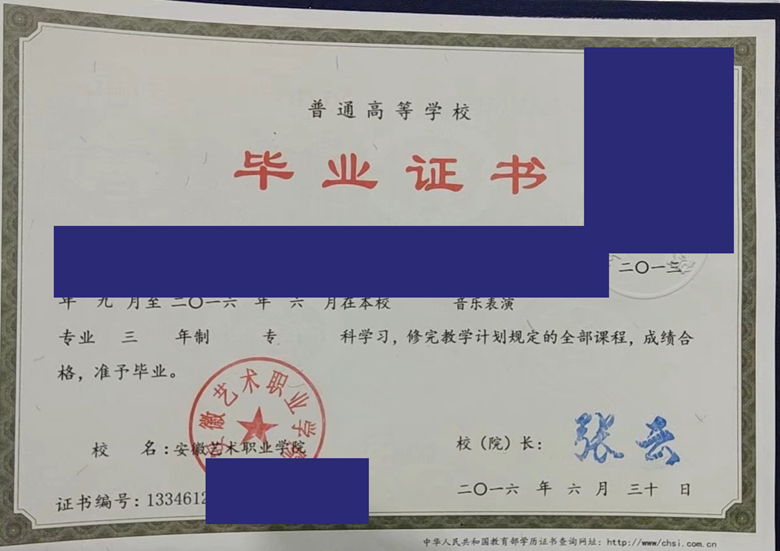 普通高等学校
毕业证书
二〇一三
年 九 月至 二〇一六 年 六 月在本校 音乐表演
专业 三 年制 专 科学习，修完教学计划规定的全部课程，成绩合
格，准予毕业。
安徽艺术职业学院
校 名：安徽艺术职业学院
校（院）长：张云
证书编号：1334612
二〇一六 年 六 月 三十 日
中华人民共和国教育部学历证书查询网址：http://www.chsi.com.cn